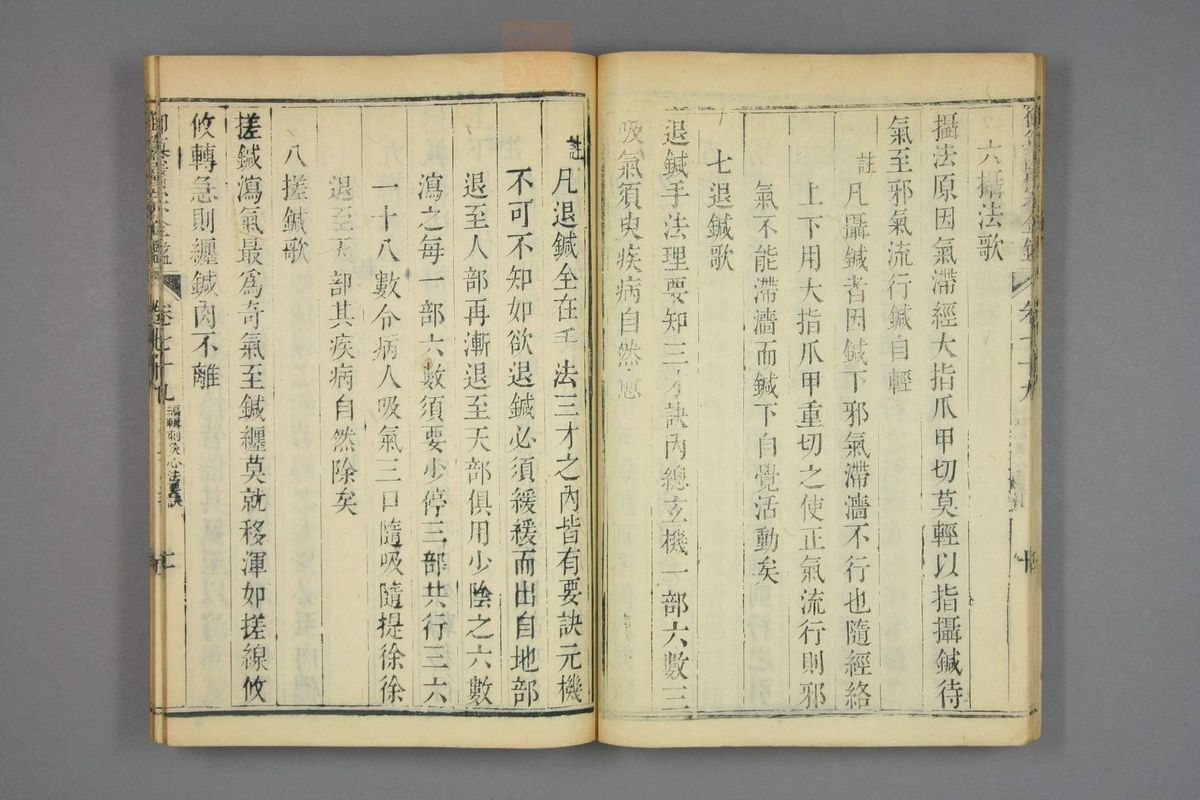 六攝法歌
攝法原因氣滯經大指爪甲切莫輕以指攝鍼待
氣至邪氣流行鍼自輕
註凡攝鍼者因鍼下邪氣滯濇不行也隨經絡
上下用大指爪甲重切之使正氣流行則邪
氣不能滯濇而鍼下自覺活動矣
七退鍼歌
退鍼手法理要知三才訣內總玄機一部六數三
吸氣須臾疾病自然愈
註凡退鍼全在手法三才之內皆有要訣元機
不可不知如欲退鍼必須緩緩而出自地部
退至人部再漸退至天部俱用少陰之六數
瀉之每一部六數須要少停三部共行三六
一十八數令病人吸氣三口隨吸隨提徐徐
退至天部其疾病自然除矣
八搓鍼歌
搓鍼瀉氣最爲奇氣至鍼纏莫就移渾如搓線攸
攸轉急則纏鍼肉不離
卷七十九
編輯刺灸心法要訣